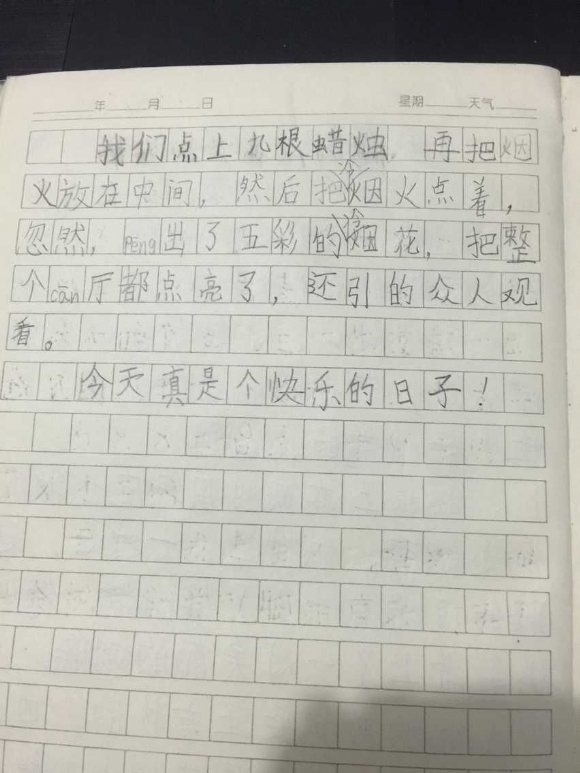 年 月 日 星期 天气
我们点上九根蜡烛，再把烟
火放在中间，然后把冷烟火点着，
忽然，pēng出了五彩的冷烟花，把整
个cān厅都点亮了，还引的众人观
看。
今天真是个快乐的日子！